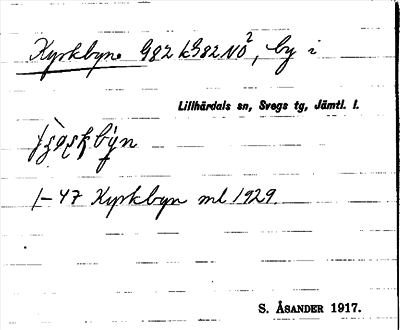 Kyrkbyn G82 kG82NÖ², by i
Lillhärdals sn, Svegs tg, Jämtl. l.
1–47 Kyrkbyn ml 1929
S. ÅSANDER 1917.